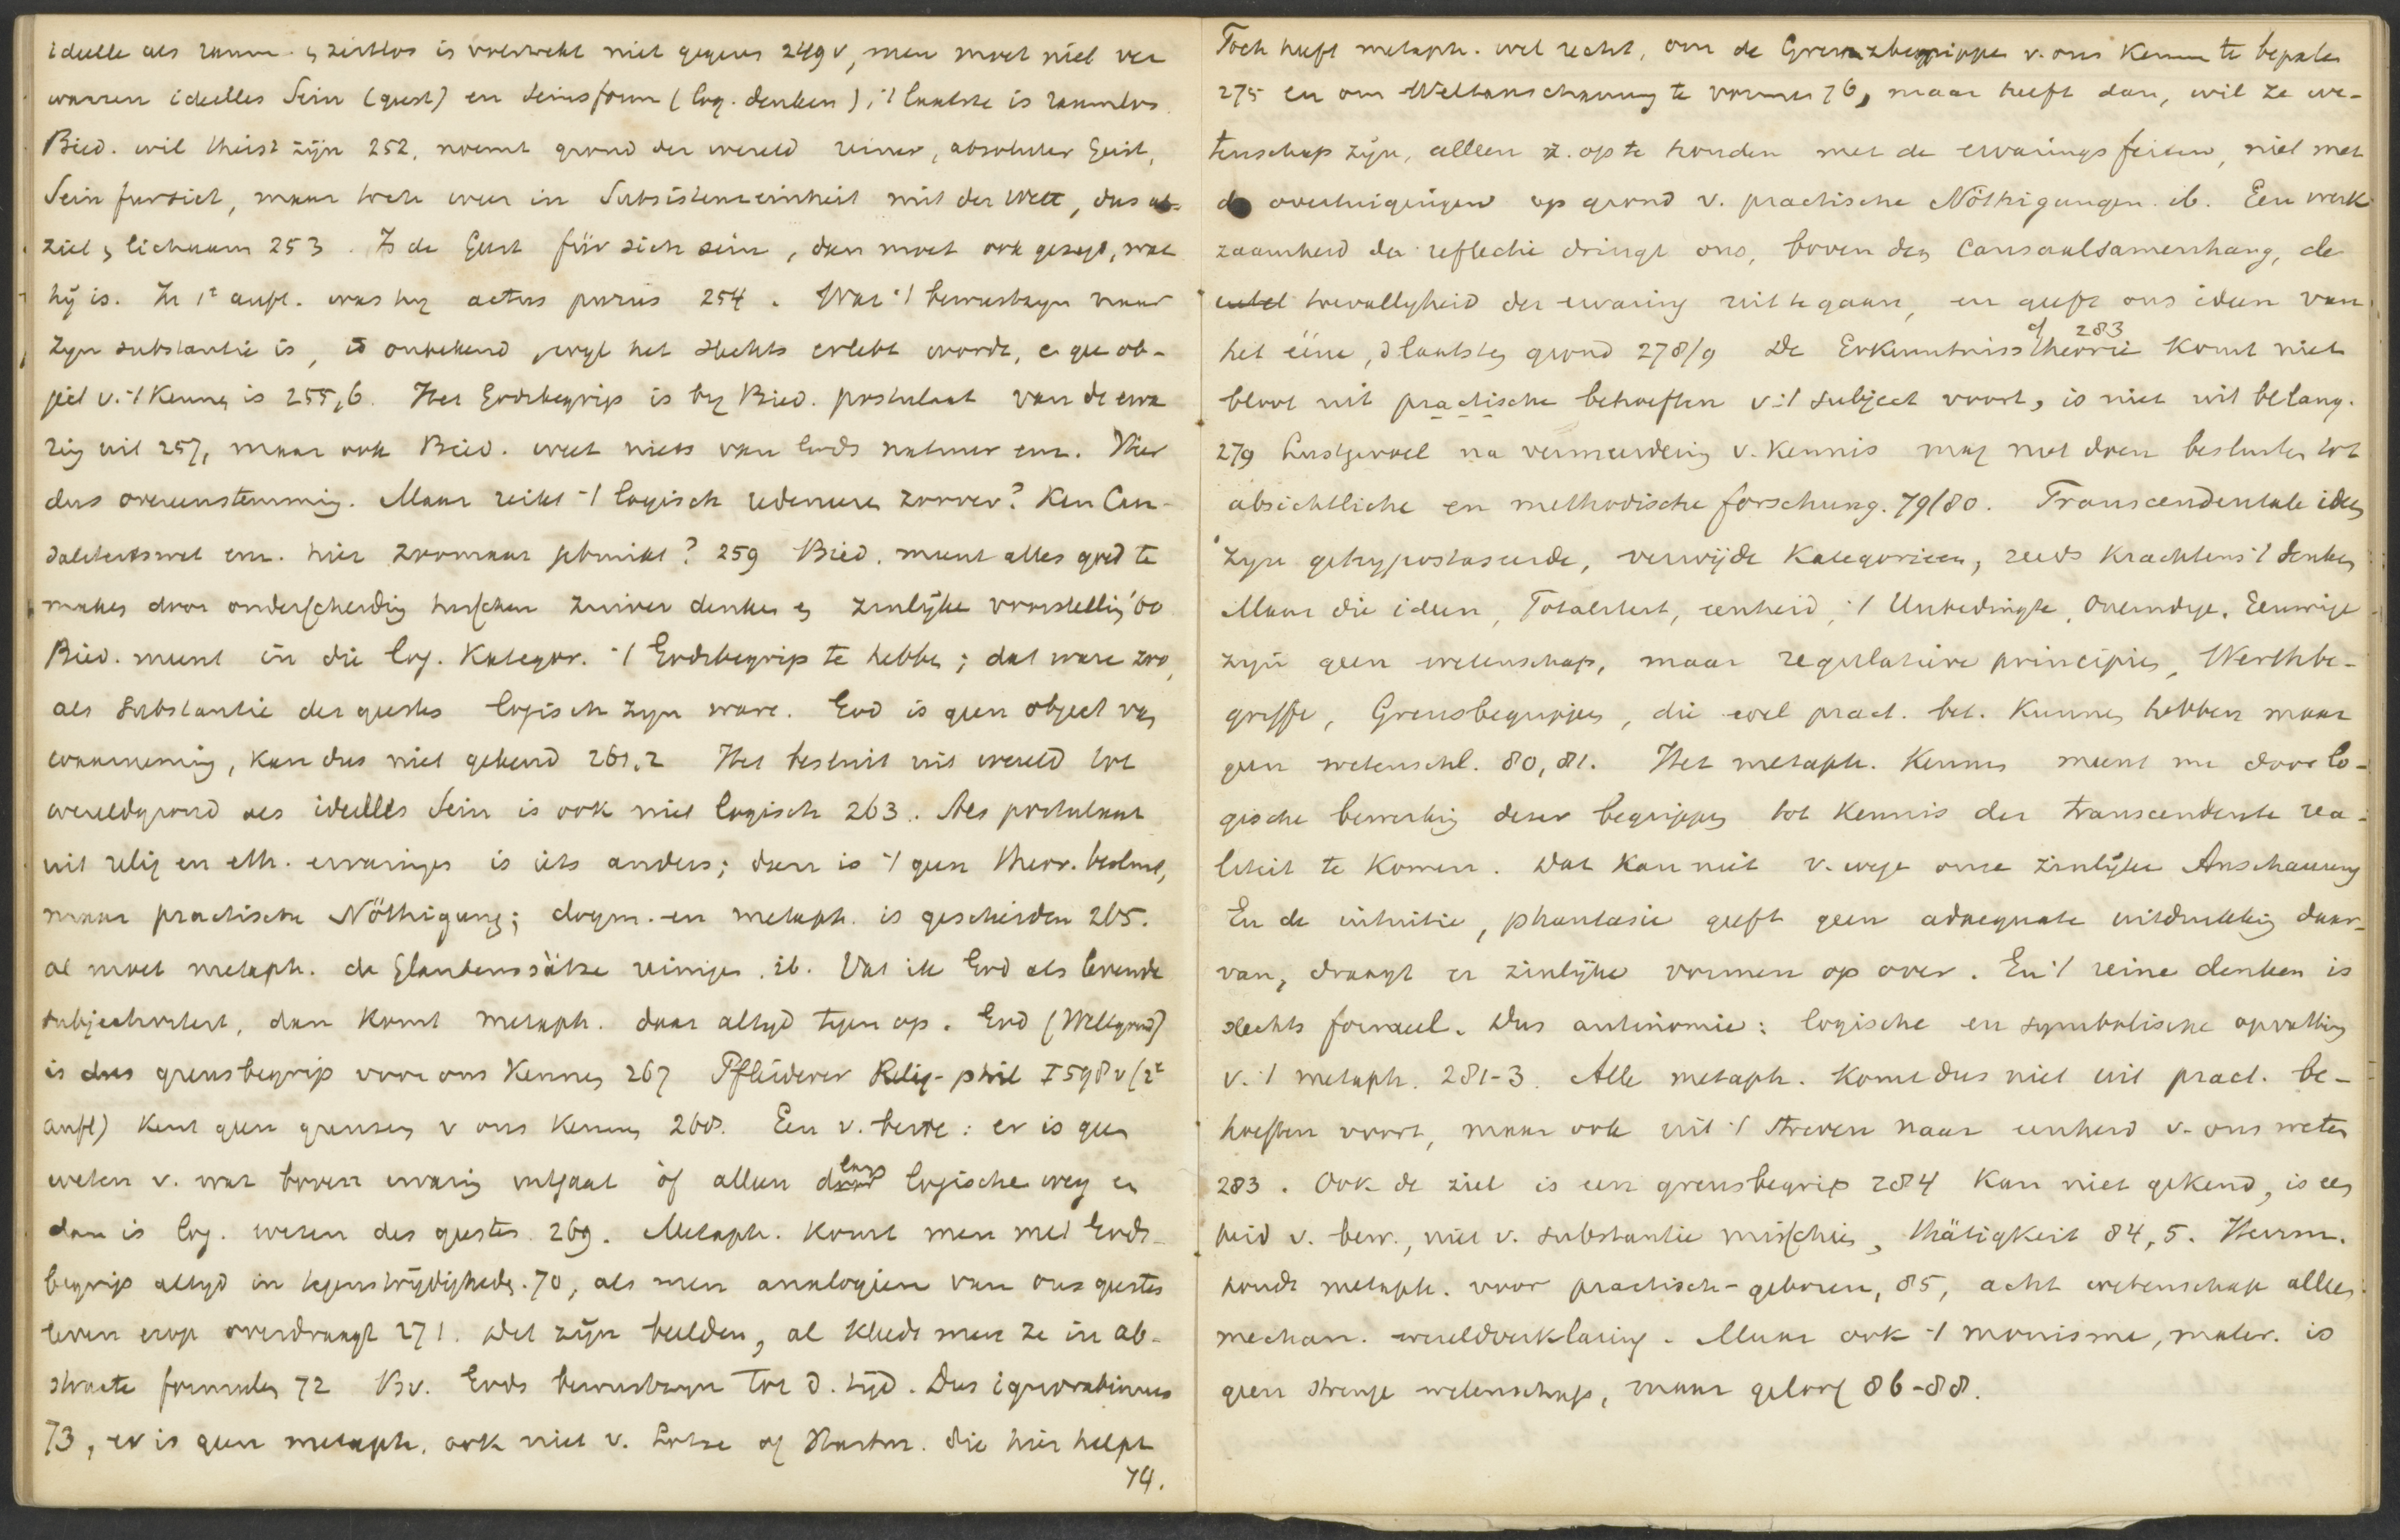 ideelle als raum- en zeitlos is verwekt niet gegeven 249v, men moet niet ver
warren ideelles Sein (geest) en Seinsform (log. denken), 't laatste is raumlos.
Bied. wil theist zijn 252, noemt grond der wereld reiner, absoluter Geist,
Sein fursich, maar toch weer in Subsistenzeinheit mit der Welt, dus als
ziel en lichaam 253. Is de Geist für sich sein, dan moet ook gezegd, wat
hij is. In 1e aufl. was hij actus purus 254. Wat 't bewustzijn naar
zijn substantie is, is onbekend, wijl het slechts erlebt wordt, en geen ob-
ject v. 't Kennen is 255,6. Het Godsbegrip is bij Bied. postulaat van de erva
ring uit 257, maar ook Bied. weet niets van Gods natuur enz. Hier
dus overeenstemming. Maar reikt 't logisch redeneren zoover? Kan Cau-
saliteitswet enz. hier zoomaar gebruikt? 259 Bied. meent alles goed te
maken door onderscheiding tusschen zuiver denken en zinlijke voorstelling '60
Bied. meent in die log. Kategor. 't Godsbegrip te hebben; dat ware zoo,
als Substantie des geestes logisch zijn ware. God is geen object van
waarneming, kan dus niet gekend 261,2 Het besluit uit wereld tot
wereldgrond als ideelles Sein is ook niet logisch 263. Als postulaat
uit relig en eth. ervaringen is iets anders; dan is 't geen theor. besluit,
maar practische Nöthigung; dogm. en metaph. is gescheiden 265.
al moet metaph. de Glaubenssätze reinigen. ib. Vat ik God als levende
subjectiviteit, dan komt metaph. daar altijd tegen op. God (Weltgrund)
is dus grensbegrip voor ons Kennen 267 Pfleiderer Relig-phil I 598v (2e
aufl) kent geen grenzen v ons Kennen 268. Een v. beide: er is geen
weten v. wat boven ervaring uitgaat òf alleen langs logische weg en
dan is log. wezen des geestes. 269. Metaph. komt men met Gods-
begrip altijd in tegenstrijdigheden. 70, als men analogieen van ons geestes
leven erop overdraagt 271. Het zijn beelden, al kleedt men ze in ab-
stracte formulen 72 Bv. Gods bewustzijn tot d. tijd. Dus ignorabimus
73, er is geen metaph. ook niet v. Lotze of Hartm. die hier helpt
74.
Toch heeft metaph. wel recht, om de Grenzbegrippen v. ons Kennen te bepalen
275 en om Weltanschauung te vormen 76, maar heeft dan, wil ze we-
tenschap zijn, alleen z. op te houden met de ervaringsfeiten, niet met
de overtuigingen op grond v. practische Nöthigungen. ib. Een werk
zaamheid der reflectie dringt ons, boven den Causaalsamenhang, de
toevalligheid der ervaring uit te gaan, en geeft ons ideen van
het ééne, d laatsten grond 278/9 De Erkenntnisstheorie komt niet
cf 283
bloot uit practische behoeften v. 't subject voort, is niet uit belang.
279 Lustgevoel na vermeerdering v. Kennis mag niet doen besluiten tot
absichtliche en methodische forschung. 79/80. Transcendentale ideen
zijn gehypostaseerde, verwijde Kategorieen, reeds krachtens 't denken
Maar die ideen, Totaliteit, eenheid, 't Unbedingte, Oneindige, Eeuwige
zijn geen wetenschap, maar regulatieve principien, Werthbe-
griffe, Grensbegrippen, die wel pract. bet. kunnen hebben maar
geen wetenschl. 80,81. Het metaph. Kennen meent nu door lo-
gische bewerking dezer begrippen tot kennis der transcendente rea-
liteit te komen. Dat kan niet v. wege onze zinlijke Anschauung
En de intuitie, phantasie geeft geen adaequate uitdrukking daar-
van, draagt er zinlijke vormen op over. En 't reine denken is
slechts formeel. Dus antinomie: logische en symbolische opvatting
v. 't metaph. 281-3. Alle metaph. komt dus niet uit pract. be-
hoeften voort, maar ook uit 't streven naar eenheid v. ons weten
283. Ook de ziel is een grensbegrip 284 Kan niet gekend, is een
heid v. bew., niet v. substantie misschien, thätigkeit 84,5. Herrm.
houdt metaph. voor practisch-geboren, 85, acht wetenschap alleen
mechan. wereldverklaring. Maar ook 't monisme, mater. is
geen strenge wetenschap, maar geloof 86-88.